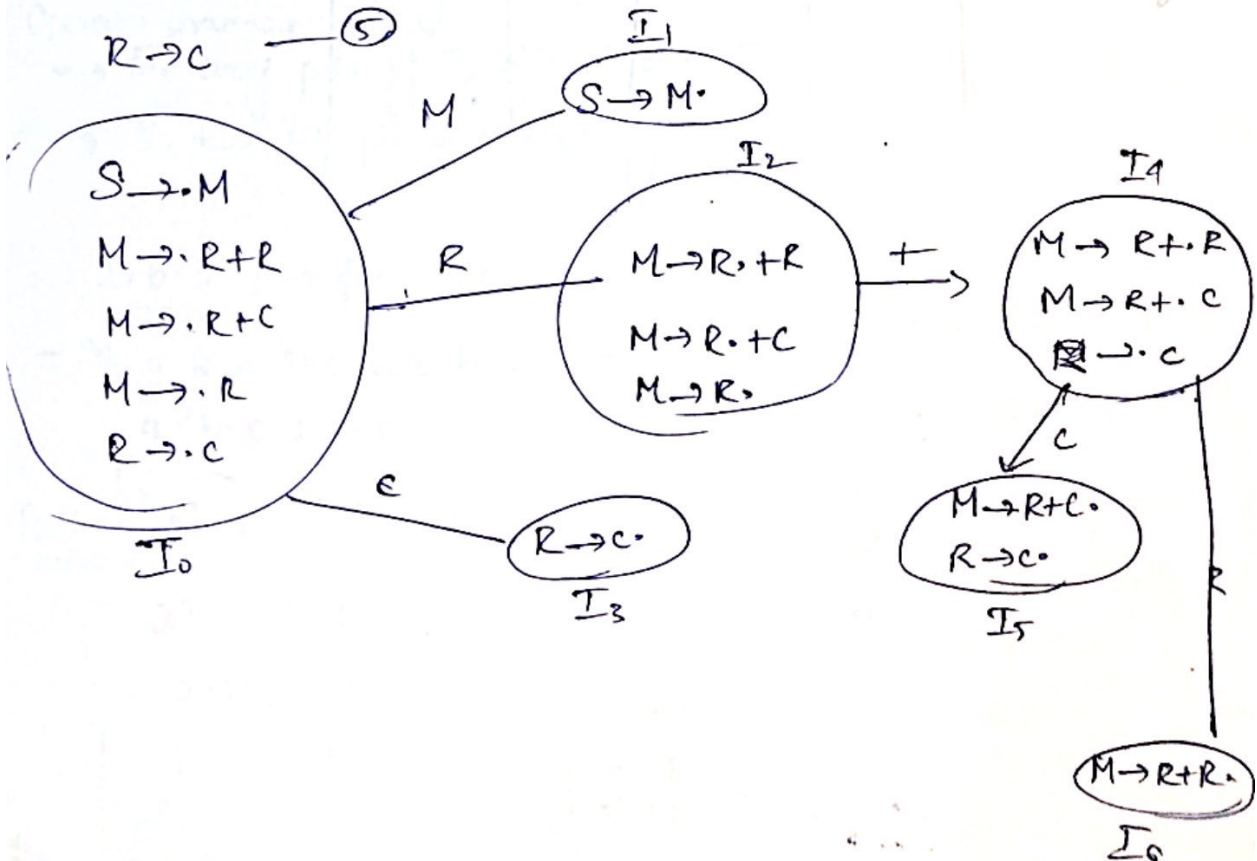 R→C — ⑤
I1
S→M·
M
I2
I4
S→·M
M→·R+R
M→·R+C
M→·R
R→·C
I0
R
M→R·+R
M→R·+C
M→R·
+
M→ R+·R
M→R+· C
→·C
C
R→C·
I3
M→R+C·
R→C·
I5
R
M→R+R·
I6